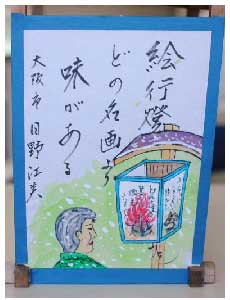 絵行燈
どの名画も
味がある
大阪市 日野江美